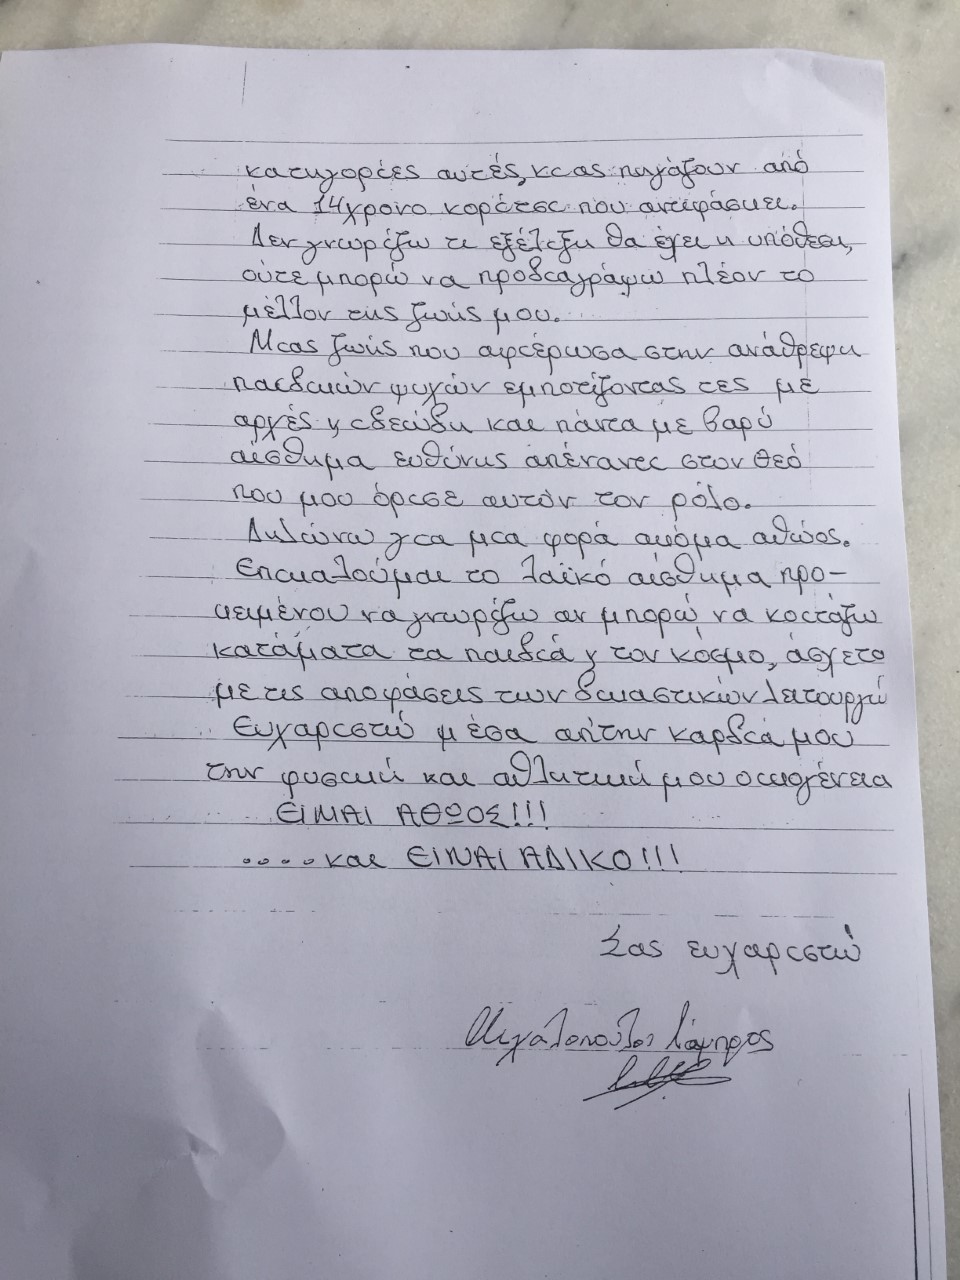 κατηγορίες αυτές, κι ας πηγάζουν από
ένα 14χρονο κορίτσι που αντιφάσκει.
Δεν γνωρίζω τι εξέλιξη θα έχει η υπόθεση,
ούτε μπορώ να προδιαγράψω πλέον το
μέλλον της ζωής μου.
Μιας ζωής που αφιέρωσα στην ανάθρεψη
παιδικών ψυχών εμποτίζοντας τες με
αρχές γ ιδεώδη και πάντα με βαρύ
αίσθημα ευθύνης απέναντι στον Θεό
που μου όρισε αυτόν τον ρόλο.
Δηλώνω για μια φορά ακόμα αθώος.
Επικαλούμαι το λαϊκό αίσθημα προ-
κειμένου να γνωρίζω αν μπορώ να κοιτάζω
κατάματα τα παιδιά γ τον κόσμο, άσχετα
με τις αποφάσεις των δικαστικών λειτουργώ
Ευχαριστώ μέσα απ'την καρδιά μου
την φυσική και αθλητική μου οικογένεια
ΕΙΜΑΙ ΑΘΩΟΣ!!!
.... και ΕΙΝΑΙ ΑΔΙΚΟ!!!
Σας ευχαριστώ
Μιχαλοπουλος Λάμπρος